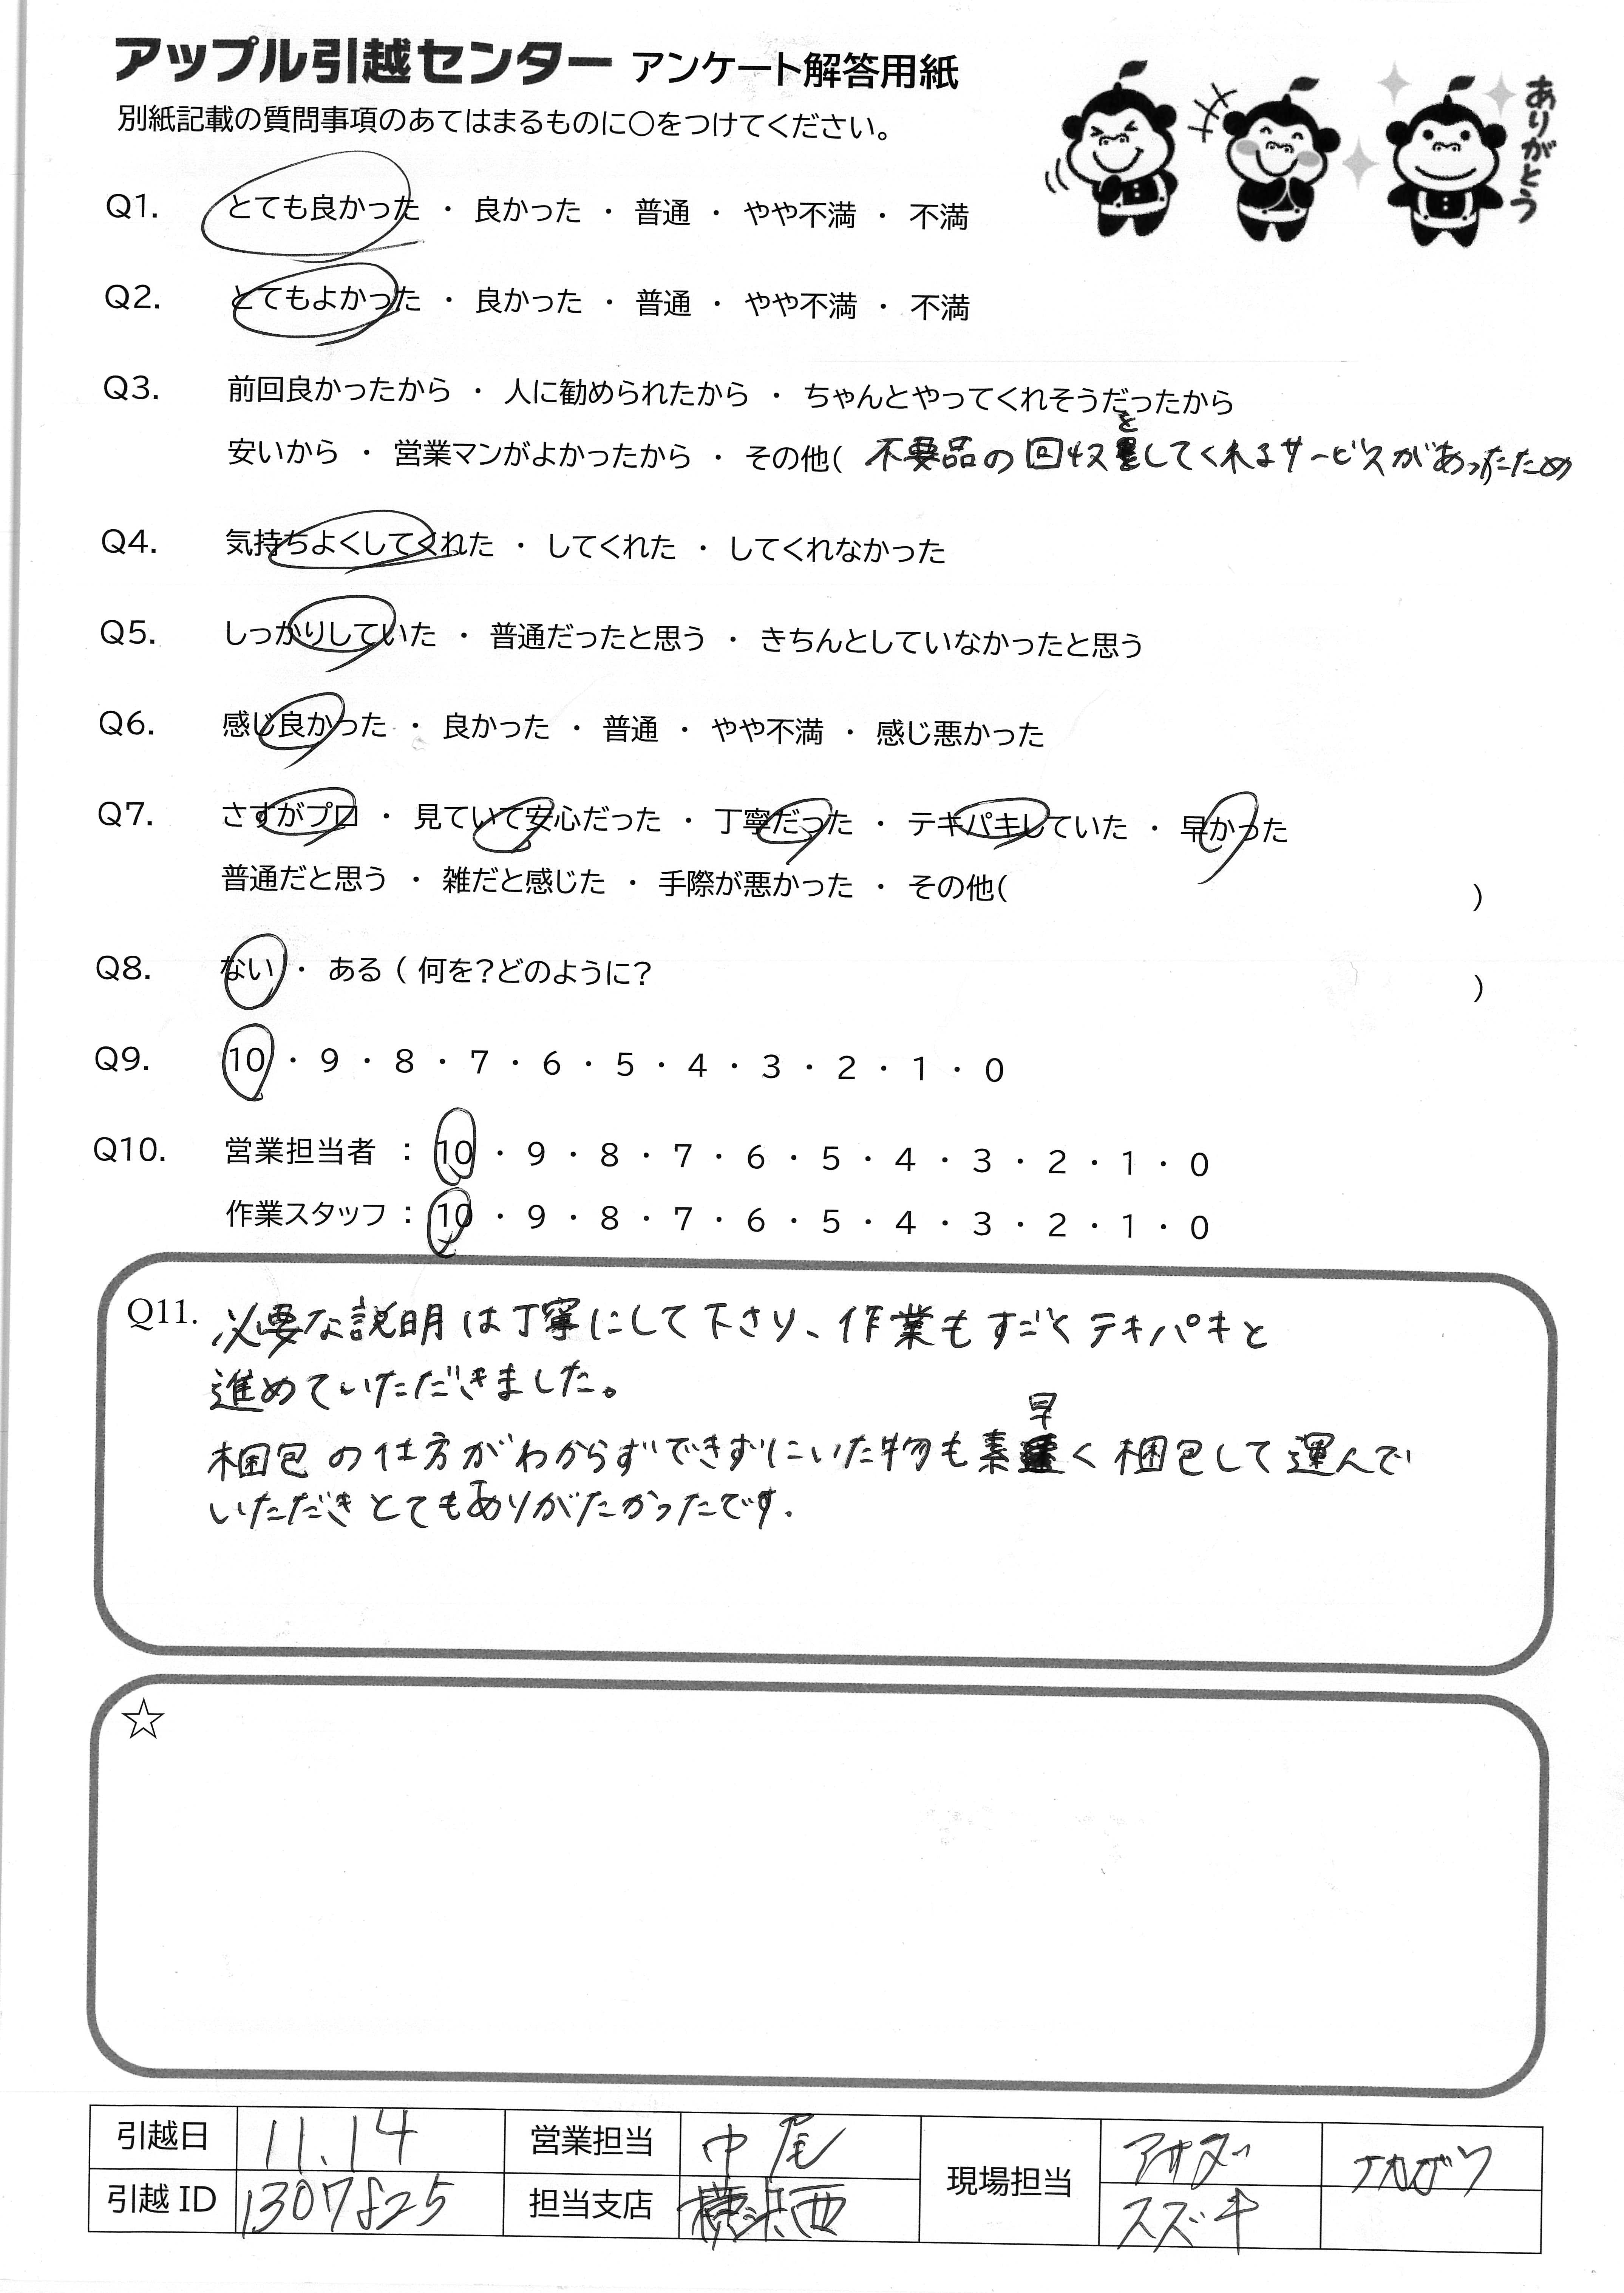 アップル引越センター アンケート解答用紙
別紙記載の質問事項のあてはまるものに○をつけてください。
ありがとう
Q1. とても良かった ・ 良かった ・ 普通 ・ やや不満 ・ 不満
Q2. とてもよかった ・ 良かった ・ 普通 ・ やや不満 ・ 不満
Q3. 前回良かったから ・ 人に勧められたから ・ ちゃんとやってくれそうだったから
安いから ・ 営業マンがよかったから ・ その他( 不要品の回収をしてくれるサービスがあったため
Q4. 気持ちよくしてくれた ・ してくれた ・ してくれなかった
Q5. しっかりしていた ・ 普通だったと思う ・ きちんとしていなかったと思う
Q6. 感じ良かった ・ 良かった ・ 普通 ・ やや不満 ・ 感じ悪かった
Q7. さすがプロ ・ 見ていて安心だった ・ 丁寧だった ・ テキパキしていた ・ 早かった
普通だと思う ・ 雑だと感じた ・ 手際が悪かった ・ その他( )
Q8. ない ・ ある ( 何を？どのように？ )
Q9. 10 ・ 9 ・ 8 ・ 7 ・ 6 ・ 5 ・ 4 ・ 3 ・ 2 ・ 1 ・ 0
Q10. 営業担当者 : 10 ・ 9 ・ 8 ・ 7 ・ 6 ・ 5 ・ 4 ・ 3 ・ 2 ・ 1 ・ 0
作業スタッフ : 10 ・ 9 ・ 8 ・ 7 ・ 6 ・ 5 ・ 4 ・ 3 ・ 2 ・ 1 ・ 0
Q11. 必要な説明は丁寧にして下さり、作業もすごくテキパキと
進めていただきました。
梱包の仕方がわからずできずにいた物も素早く梱包して運んで
いただきとてもありがたかったです.
☆
引越日 11.14 営業担当 中尾 現場担当
引越 ID 1307825 担当支店 横浜西 スズキ